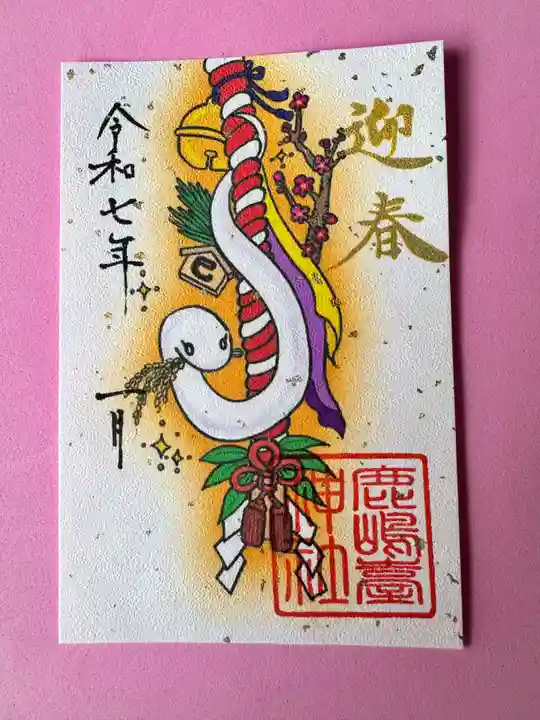 迎春
令和七年
一月
鹿嶋臺
神社